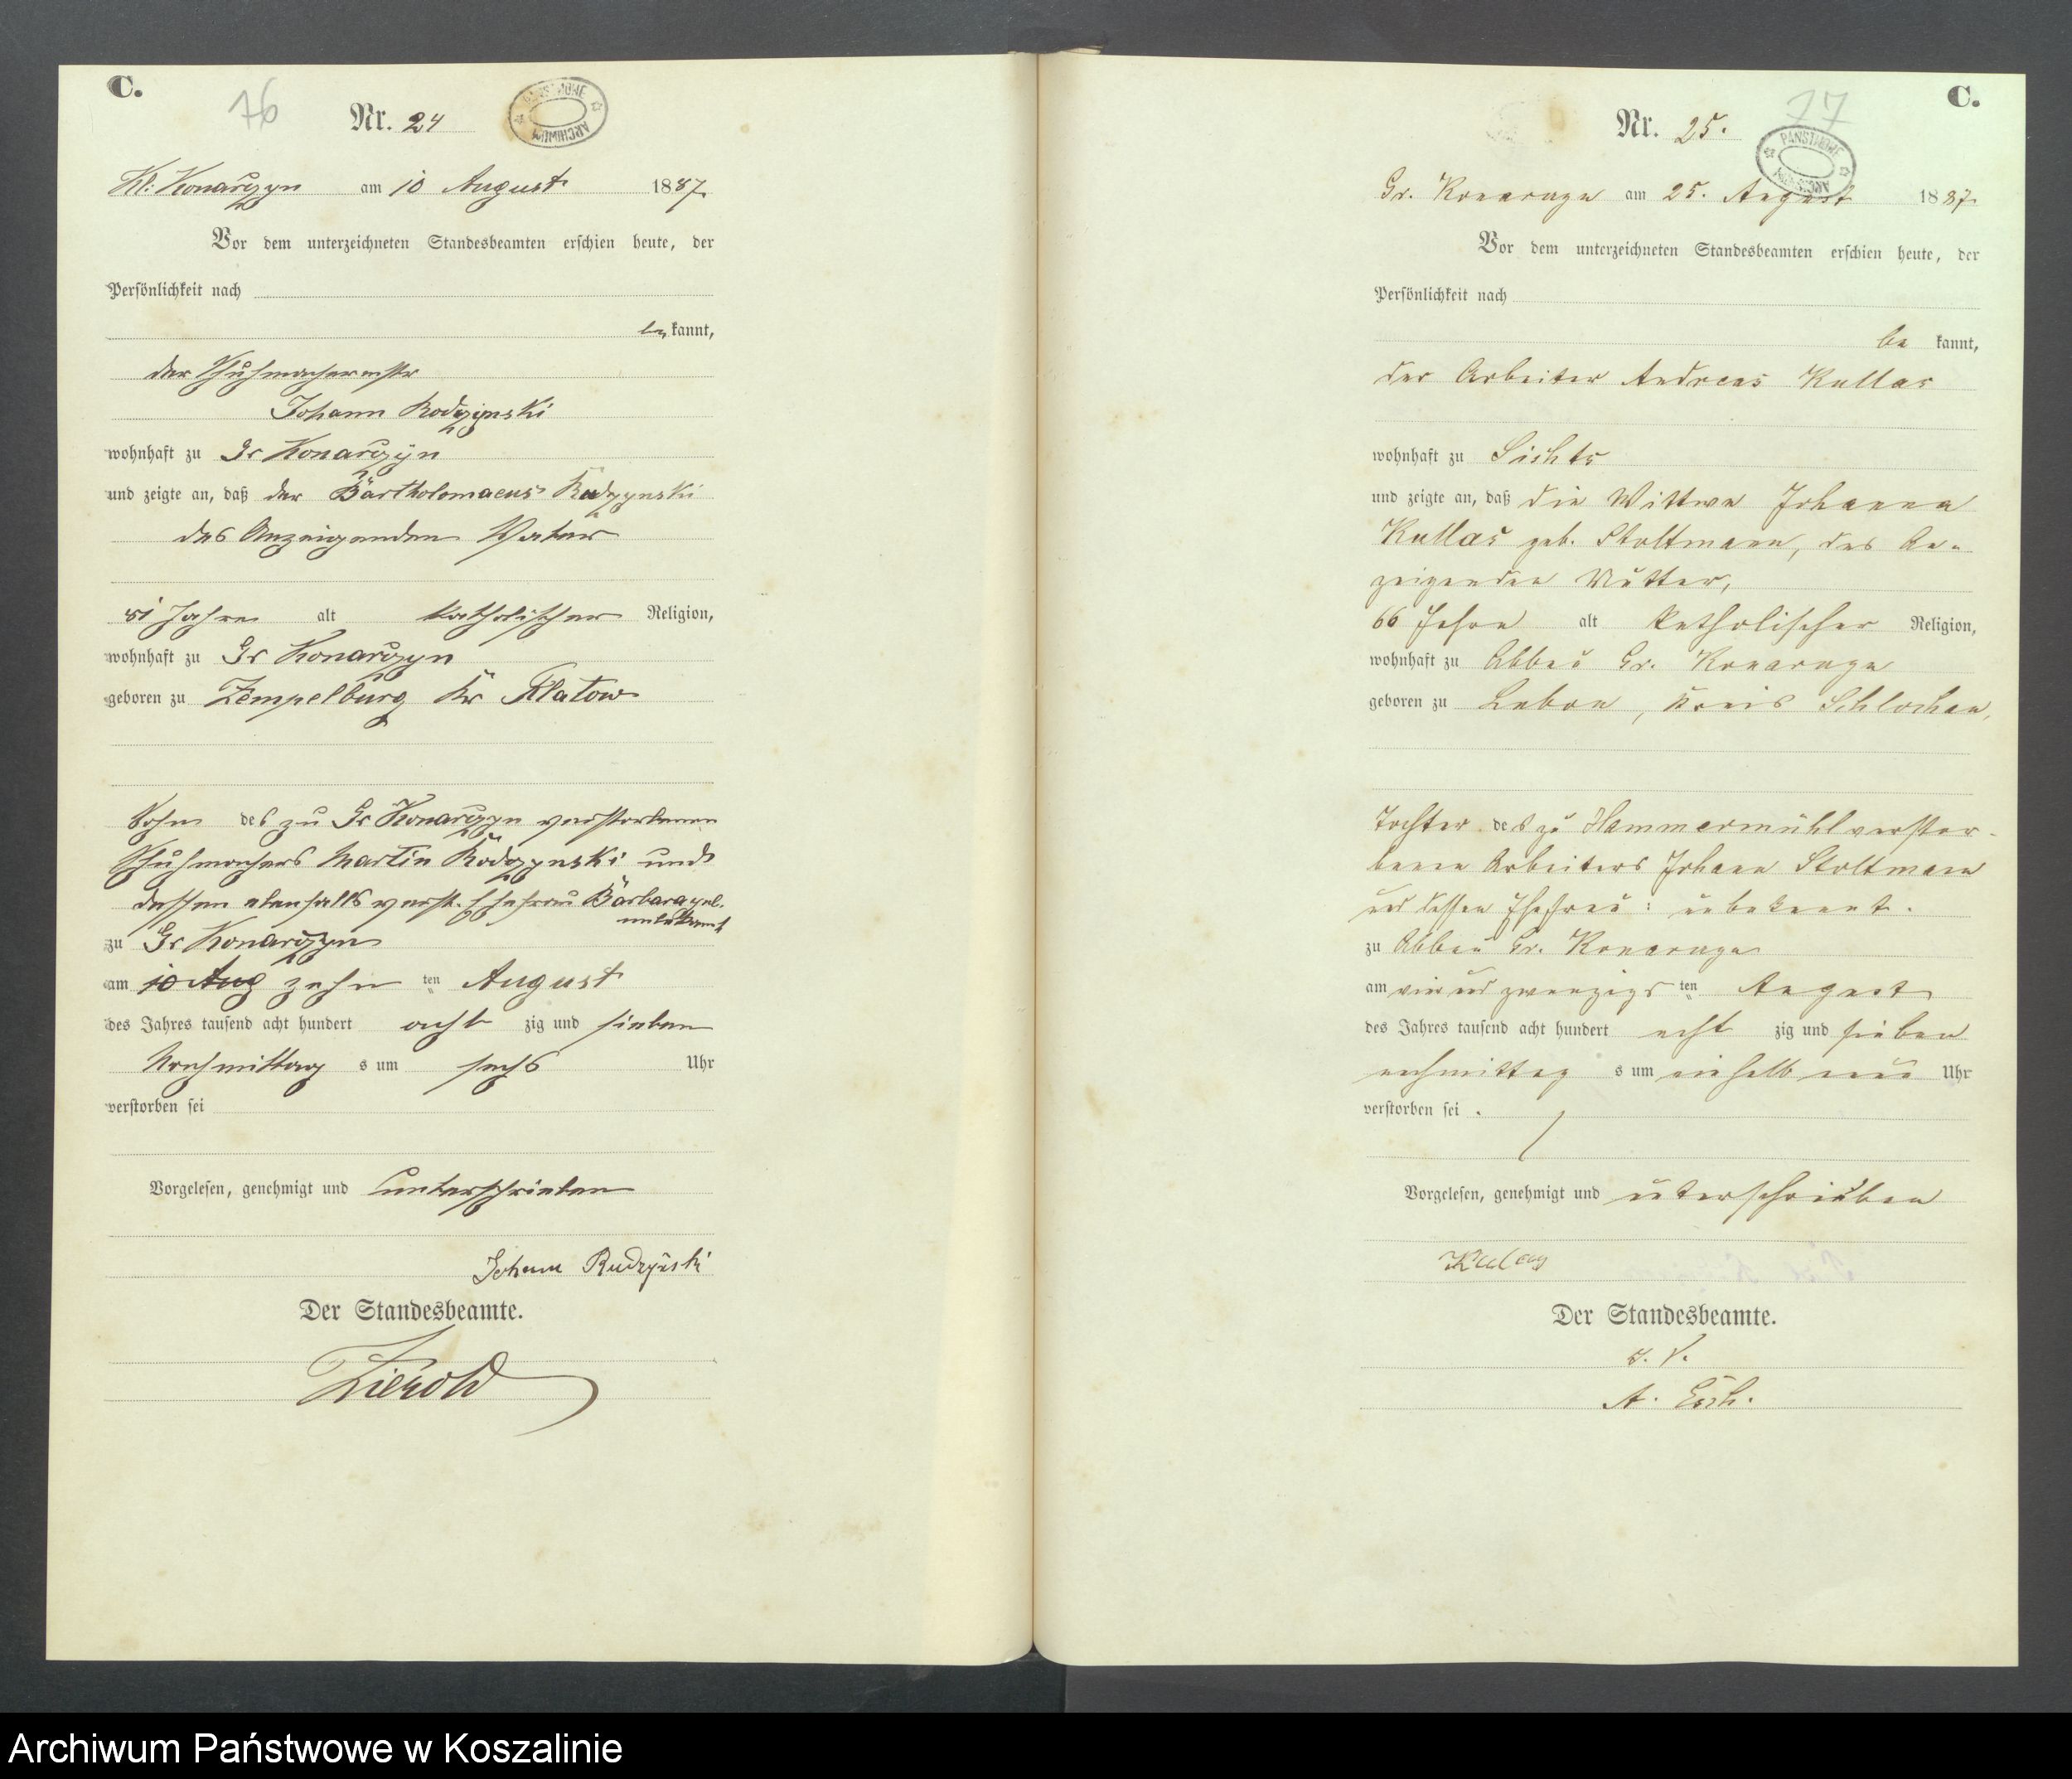 C.
76
Nr. 24
PAŃSTWOWE ARCHIWUM
Kl: Konarczyn am 10 August 1887
Vor dem unterzeichneten Standesbeamten erschien heute, der
Persönlichkeit nach
be kannt,
der Schuhmachermstr
Johann Rodzynski
wohnhaft zu Gr Konarczyn
und zeigte an, daß der Bartholomaeus Rudzynski
des Anzeigenden Vater
81 Jahre alt katholischer Religion,
wohnhaft zu Gr Konarczyn
geboren zu Zempelburg Kr Flatow
Sohn des zu Gr Konarczyn verstorbenen
Schuhmachers Martin Rodzynski und
dessen ebenfalls verst. Ehefrau Barbara geb.
unbekannt
zu Gr Konarczyn
am 10 Aug zehn ten August
des Jahres tausend acht hundert acht zig und sieben
Nachmittag s um sechs Uhr
verstorben sei
Vorgelesen, genehmigt und unterschrieben
Johann Rudzyński
Der Standesbeamte.
Zierold
C.
77
Nr. 25.
PAŃSTWOWE ARCHIWUM
Gr. Konarczyn am 25. August 1887
Vor dem unterzeichneten Standesbeamten erschien heute, der
Persönlichkeit nach
be kannt,
der Arbeiter Andreas Kullas
wohnhaft zu Sichts
und zeigte an, daß die Wittwe Johanna
Kullas geb. Stoltmann, des An-
zeigenden Mutter,
66 Jahre alt katholischer Religion,
wohnhaft zu Abbau Gr. Konarczyn
geboren zu Lubon, Kreis Schlochau,
Tochter des zu Hammermühl verstor-
benen Arbeiters Johann Stoltmann
und dessen Ehefrau: unbekannt.
zu Abbau Gr. Konarczyn
am vier und zwanzigs ten August
des Jahres tausend acht hundert acht zig und sieben
nachmittag s um einhalb neun Uhr
verstorben sei.
Vorgelesen, genehmigt und unterschrieben
Der Standesbeamte.
I. V.
Archiwum Państwowe w Koszalinie